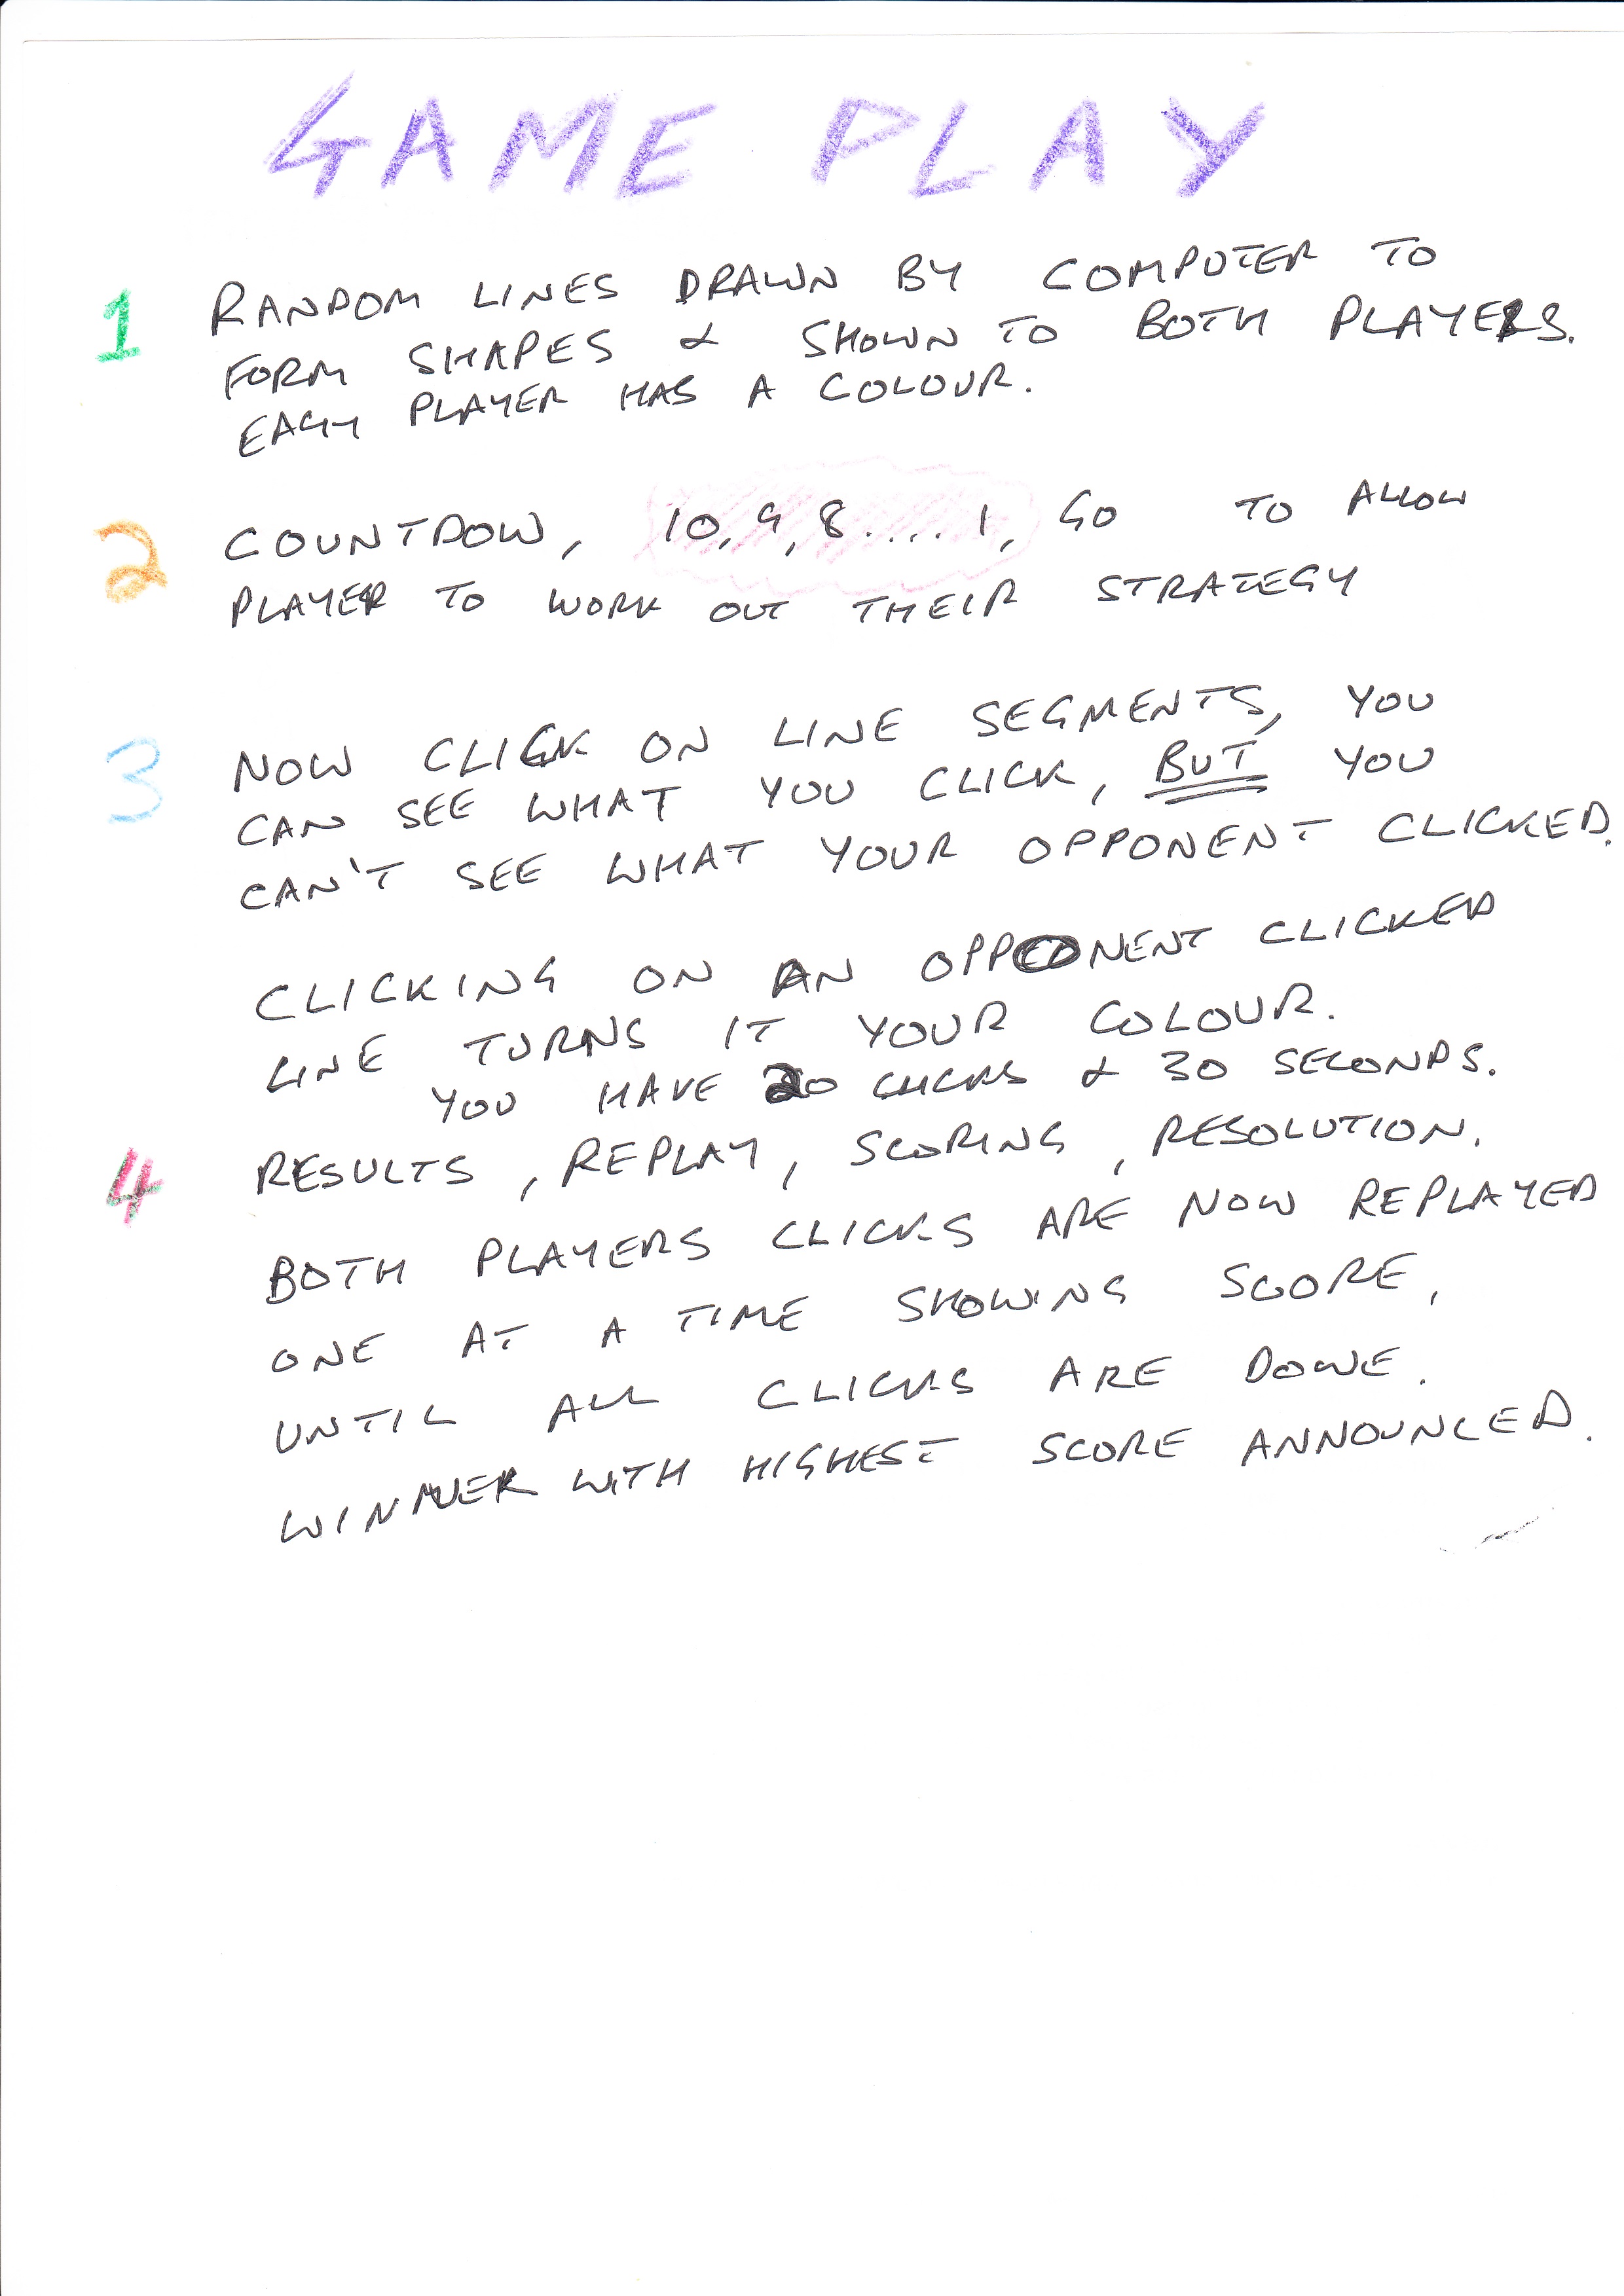 GAME PLAY
1 RANDOM LINES DRAWN BY COMPUTER TO
FORM SHAPES & SHOWN TO BOTH PLAYERS.
EACH PLAYER HAS A COLOUR.
2 COUNTDOW, 10, 9, 8.... 1, GO TO ALLOW
PLAYER TO WORK OUT THEIR STRATEGY
3 NOW CLICK ON LINE SEGMENTS, YOU
CAN SEE WHAT YOU CLICK, BUT YOU
CAN'T SEE WHAT YOUR OPPONENT CLICKED.
CLICKING ON AN OPPONENT CLICKED
LINE TURNS IT YOUR COLOUR.
YOU HAVE 20 CLICKS & 30 SECONDS.
4 RESULTS, REPLAY, SCORING, RESOLUTION.
BOTH PLAYERS CLICKS ARE NOW REPLAYED
ONE AT A TIME SHOWING SCORE,
UNTIL ALL CLICKS ARE DONE.
WINNER WITH HIGHEST SCORE ANNOUNCED.